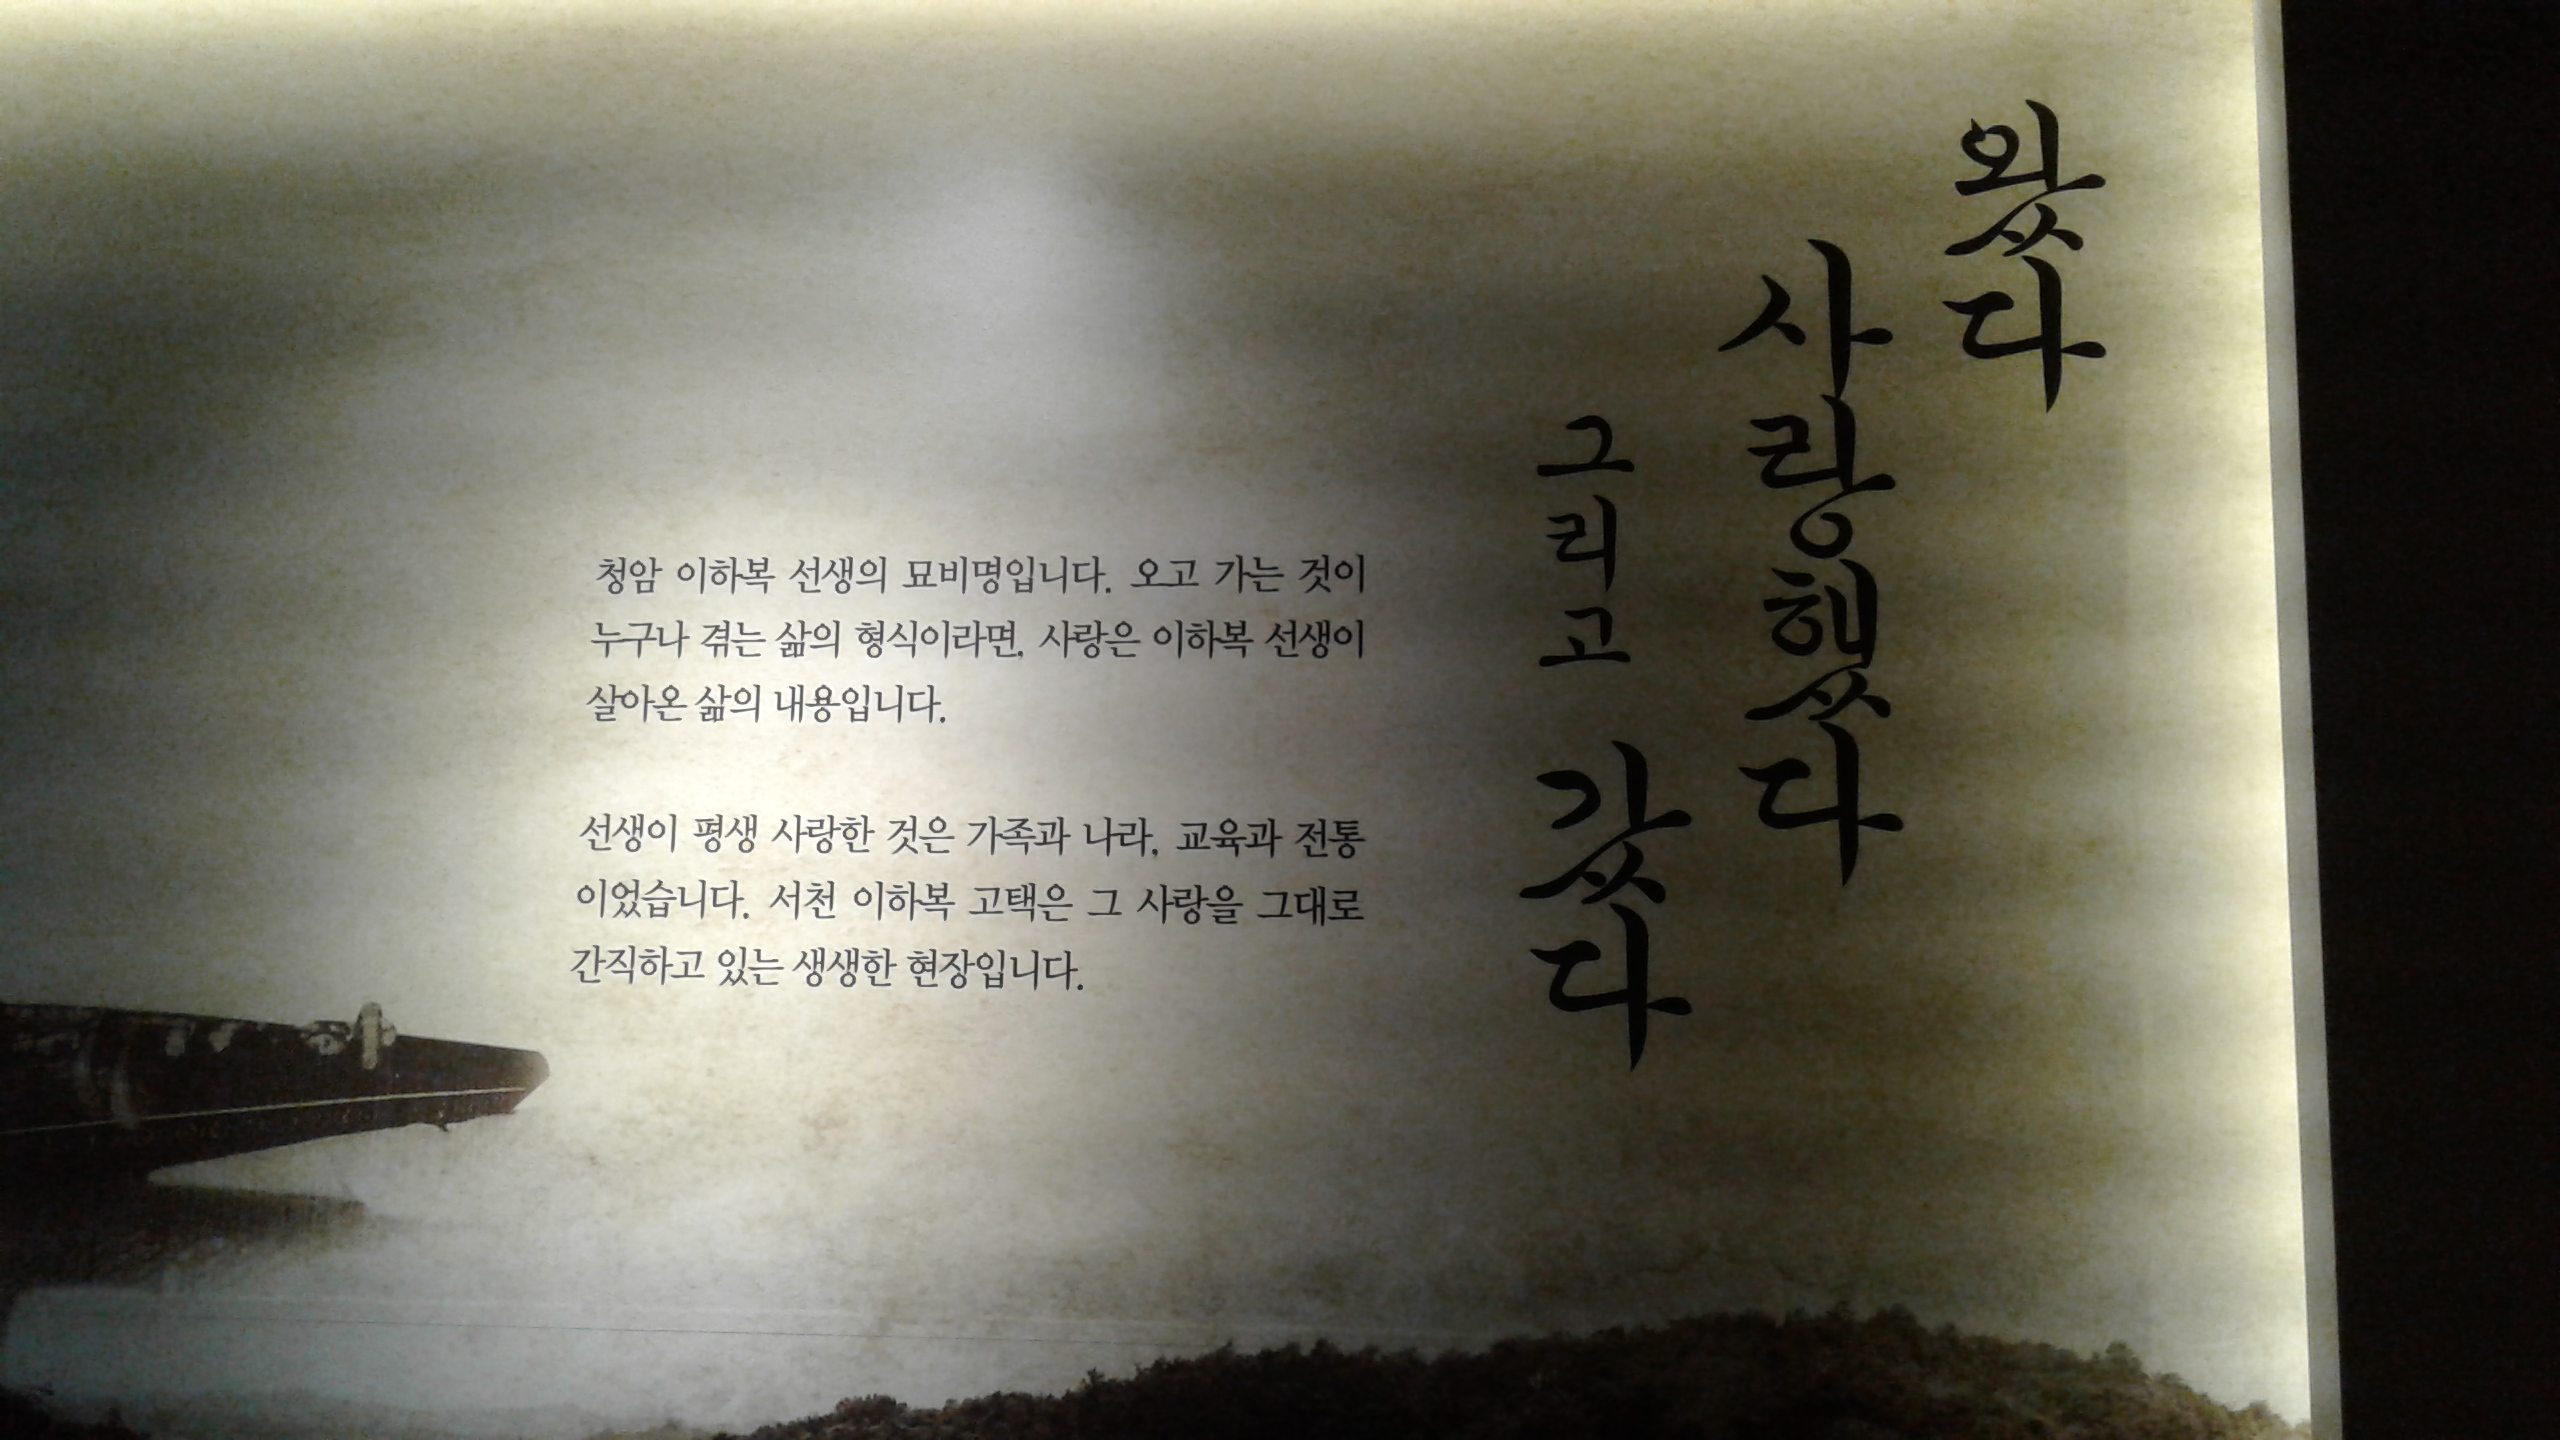 왔다
사랑했다
그리고 갔다
청암 이하복 선생의 묘비명입니다. 오고 가는 것이
누구나 겪는 삶의 형식이라면, 사랑은 이하복 선생이
살아온 삶의 내용입니다.
선생이 평생 사랑한 것은 가족과 나라, 교육과 전통
이었습니다. 서천 이하복 고택은 그 사랑을 그대로
간직하고 있는 생생한 현장입니다.